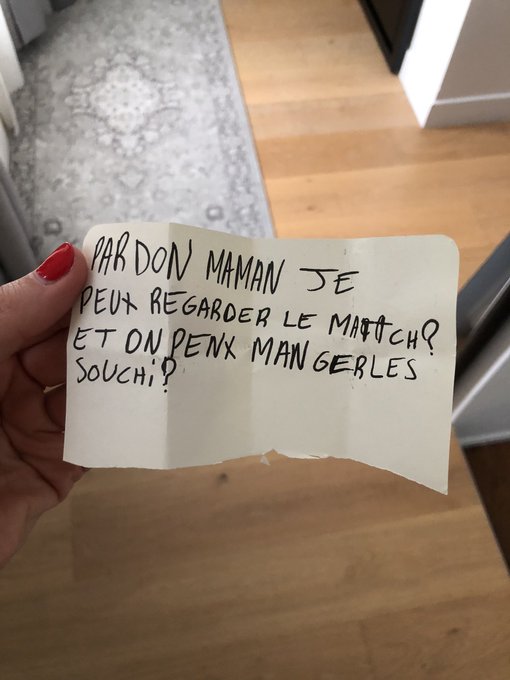 PARDON MAMAN JE
PEUX REGARDER LE MATCH?
ET ON PENX MANGERLES
SOUCHi?